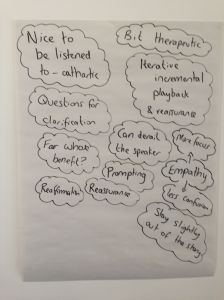 Nice to
be listened
to - cathartic
Bit therapeutic
Iterative
incremental
playback
& reassurance
Questions for
clarification
Can derail
the speaker
More focus
For whose
benefit?
Empathy
Prompting
less confusion
Reaffirmation
Reassurance
Stay slightly
out of the story